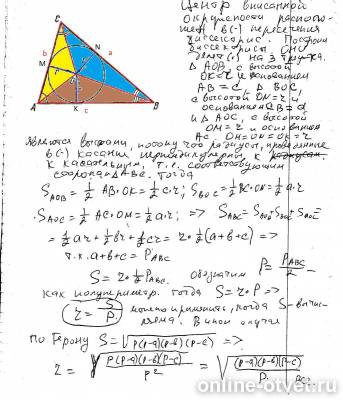 C
M
N
b
a
O
A
K
c
B
Центр вписанной
окружности располо-
жен в (·) пересечения
биссектрис. Построим
биссектрисы. Они
делят (·) на 3
△ AOB, с высотой
OK=r и основанием
AB = c, △ BOC,
с высотой ON=r и
основанием CB=a
и △ AOC, с высотой
OM=r и основанием
AC. OM=ON=OK=r
являются высотами, потому что радиусы, проведенные
в (·) касания перпендикулярны к
к касательным, т.е. соответствующим
сторонам △ABC. Тогда
S_AOB = 1/2 AB·OK = 1/2 c·r; S_BOC = 1/2 BC·ON = 1/2 a·r
S_AOC = 1/2 AC·OM = 1/2 b·r; => S_ABC =
= 1/2 ar + 1/2 br + 1/2 cr = r·1/2(a+b+c) =>
т.к. a+b+c = P_ABC
S = r·1/2 P_ABC. Обозначим p = P_ABC/2 —
как полупериметр. Тогда S = r·p =>
r = S/p можно применить, когда S - вычис-
лена. В ином случае
по Герону S = √(p(p-a)(p-b)(p-c)) =>
r = √(p(p-a)(p-b)(p-c)/p²) = √((p-a)(p-b)(p-c)/p)
online-otvet.ru